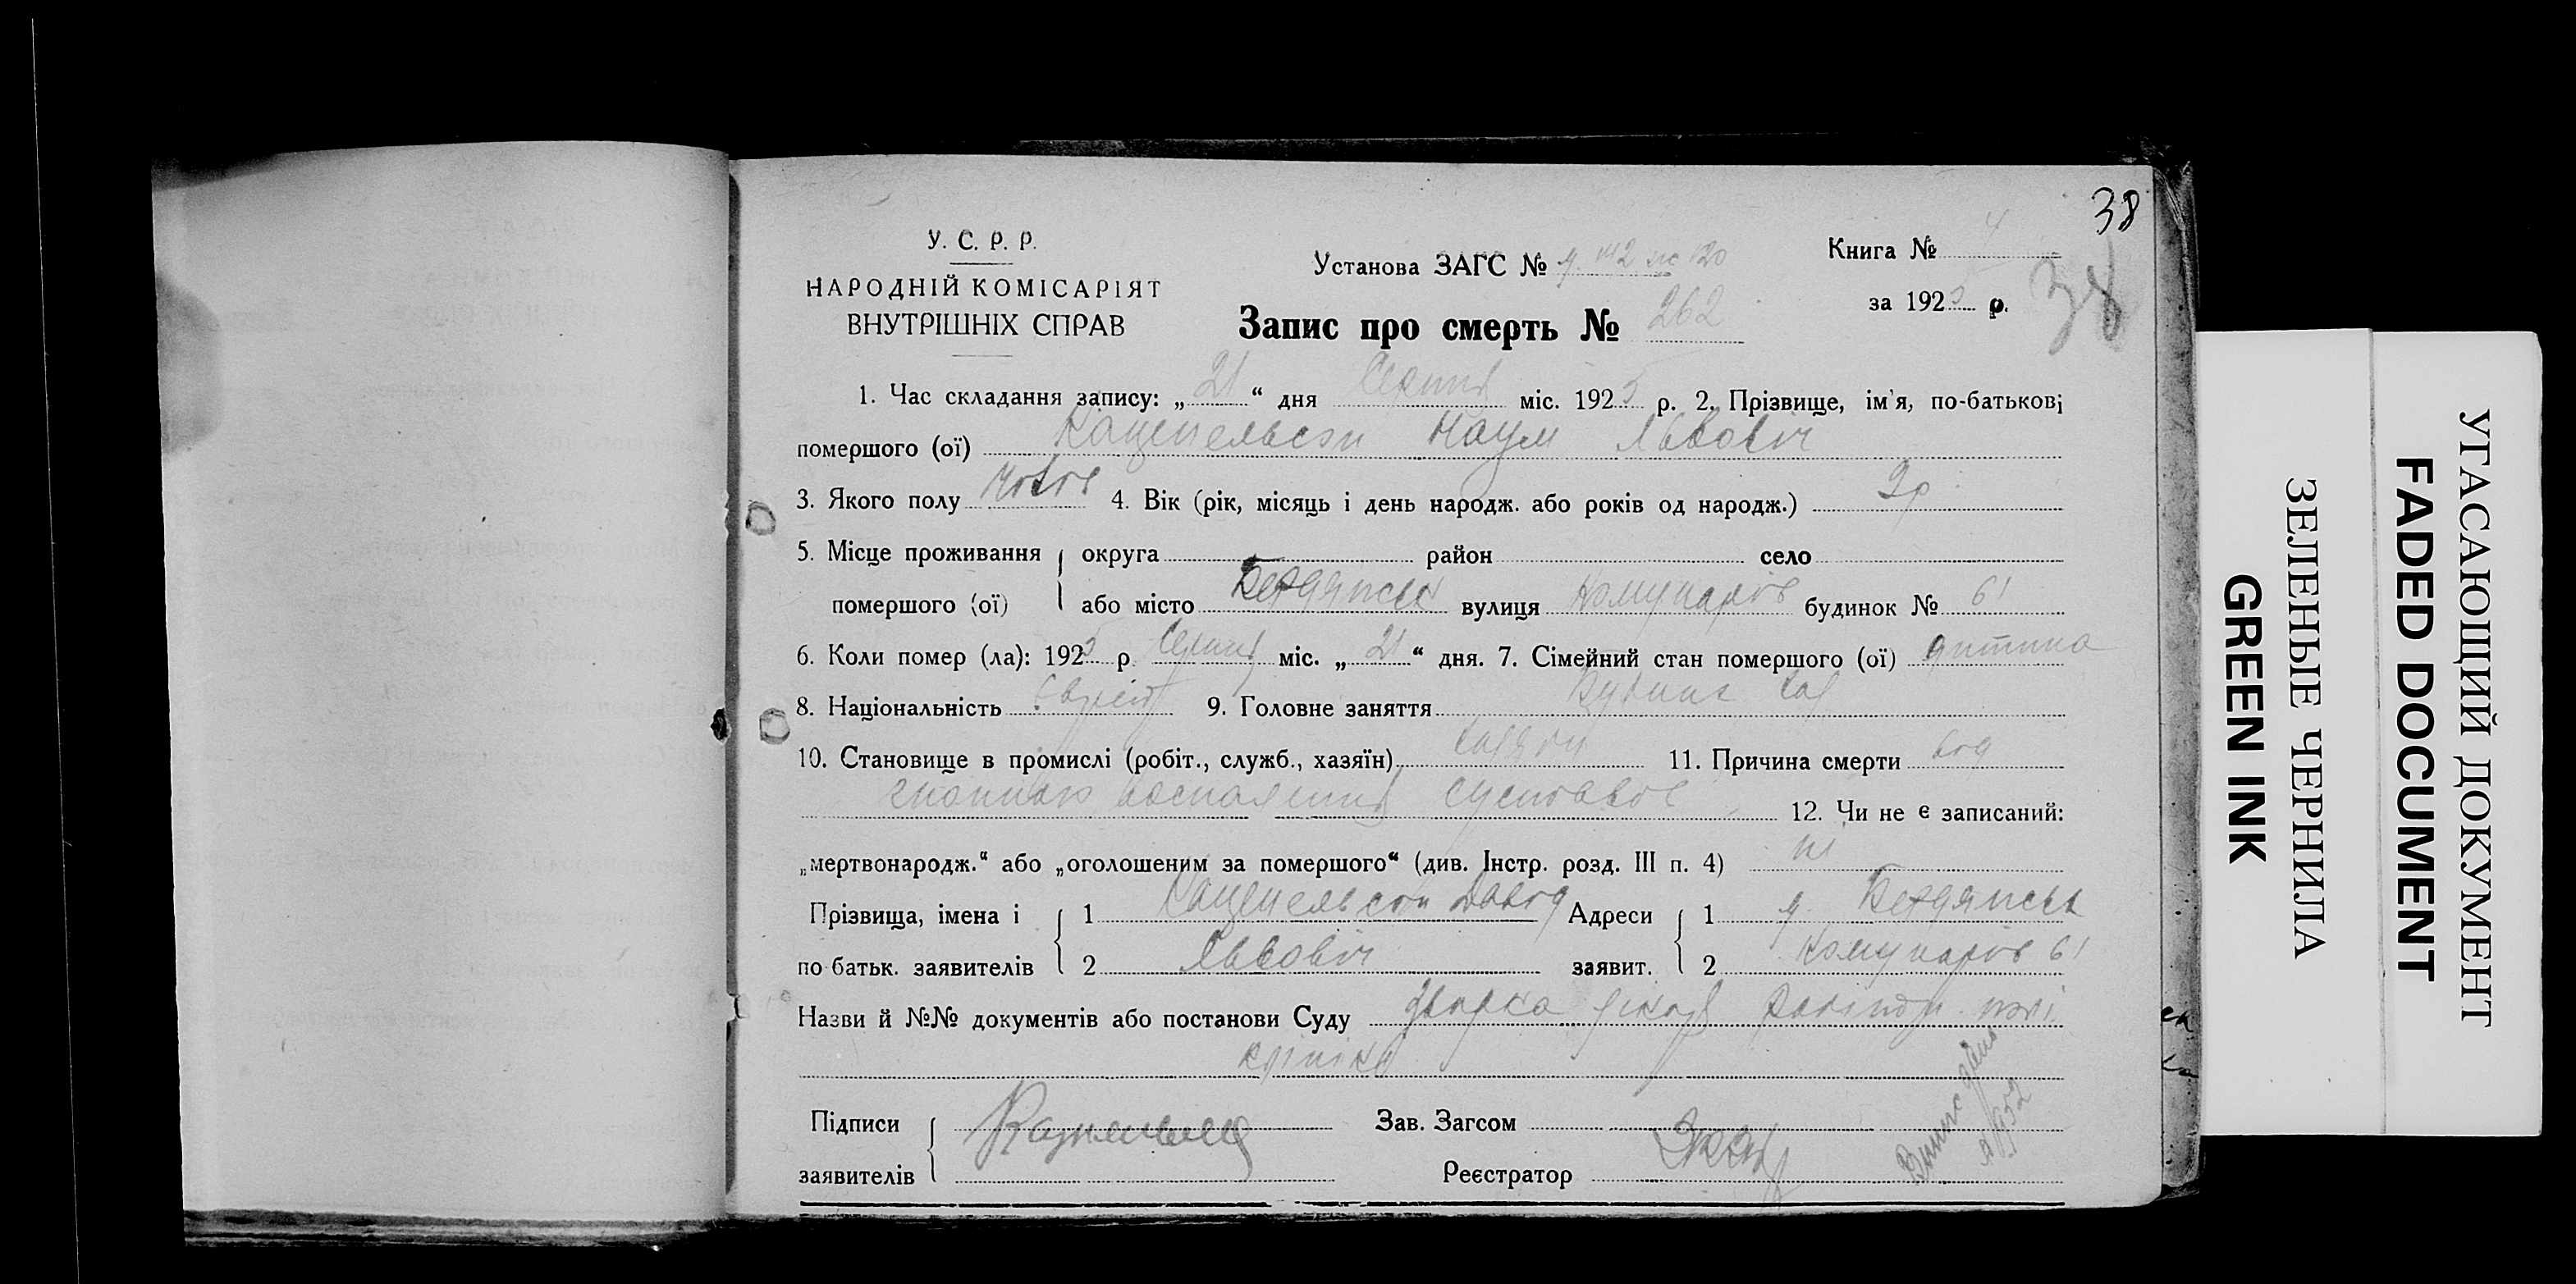 38
У. С. Р. Р.
НАРОДНІЙ КОМІСАРІЯТ
ВНУТРІШНІХ СПРАВ
Установа ЗАГС №
Книга № 4
за 1925 р.
38
Запис про смерть № 262
1. Час складання запису: „21“ дня Серпня міс. 1925 р. 2. Прізвище, ім'я, по-батькові
помершого (ої) Каценельсон Наум Львовіч
3. Якого полу 4. Вік (рік, місяць і день народж. або років од народж.)
5. Місце проживання округа район село
помершого (ої) або місто Бердянськ вулиця Комунарів будинок № 61
6. Коли помер (ла): 1925 р Серпня міс. „21“ дня. 7. Сімейний стан помершого (ої) дитина
8. Національність 9. Головне заняття
10. Становище в промислі (робіт., служб., хазяїн) 11. Причина смерти од
12. Чи не є записаний:
„мертвонародж.“ або „оголошеним за помершого“ (див. Інстр. розд. III п. 4) ні
Прізвища, імена і 1 Каценельсон Давид Адреси 1 Бердянськ
по батьк. заявителів 2 Львовіч заявит. 2 Комунарів 61
Назви й №№ документів або постанови Суду
Підписи
заявителів
Зав. Загсом
Реєстратор
УГАСАЮЩИЙ ДОКУМЕНТ
FADED DOCUMENT
ЗЕЛЕНЫЕ ЧЕРНИЛА
GREEN INK